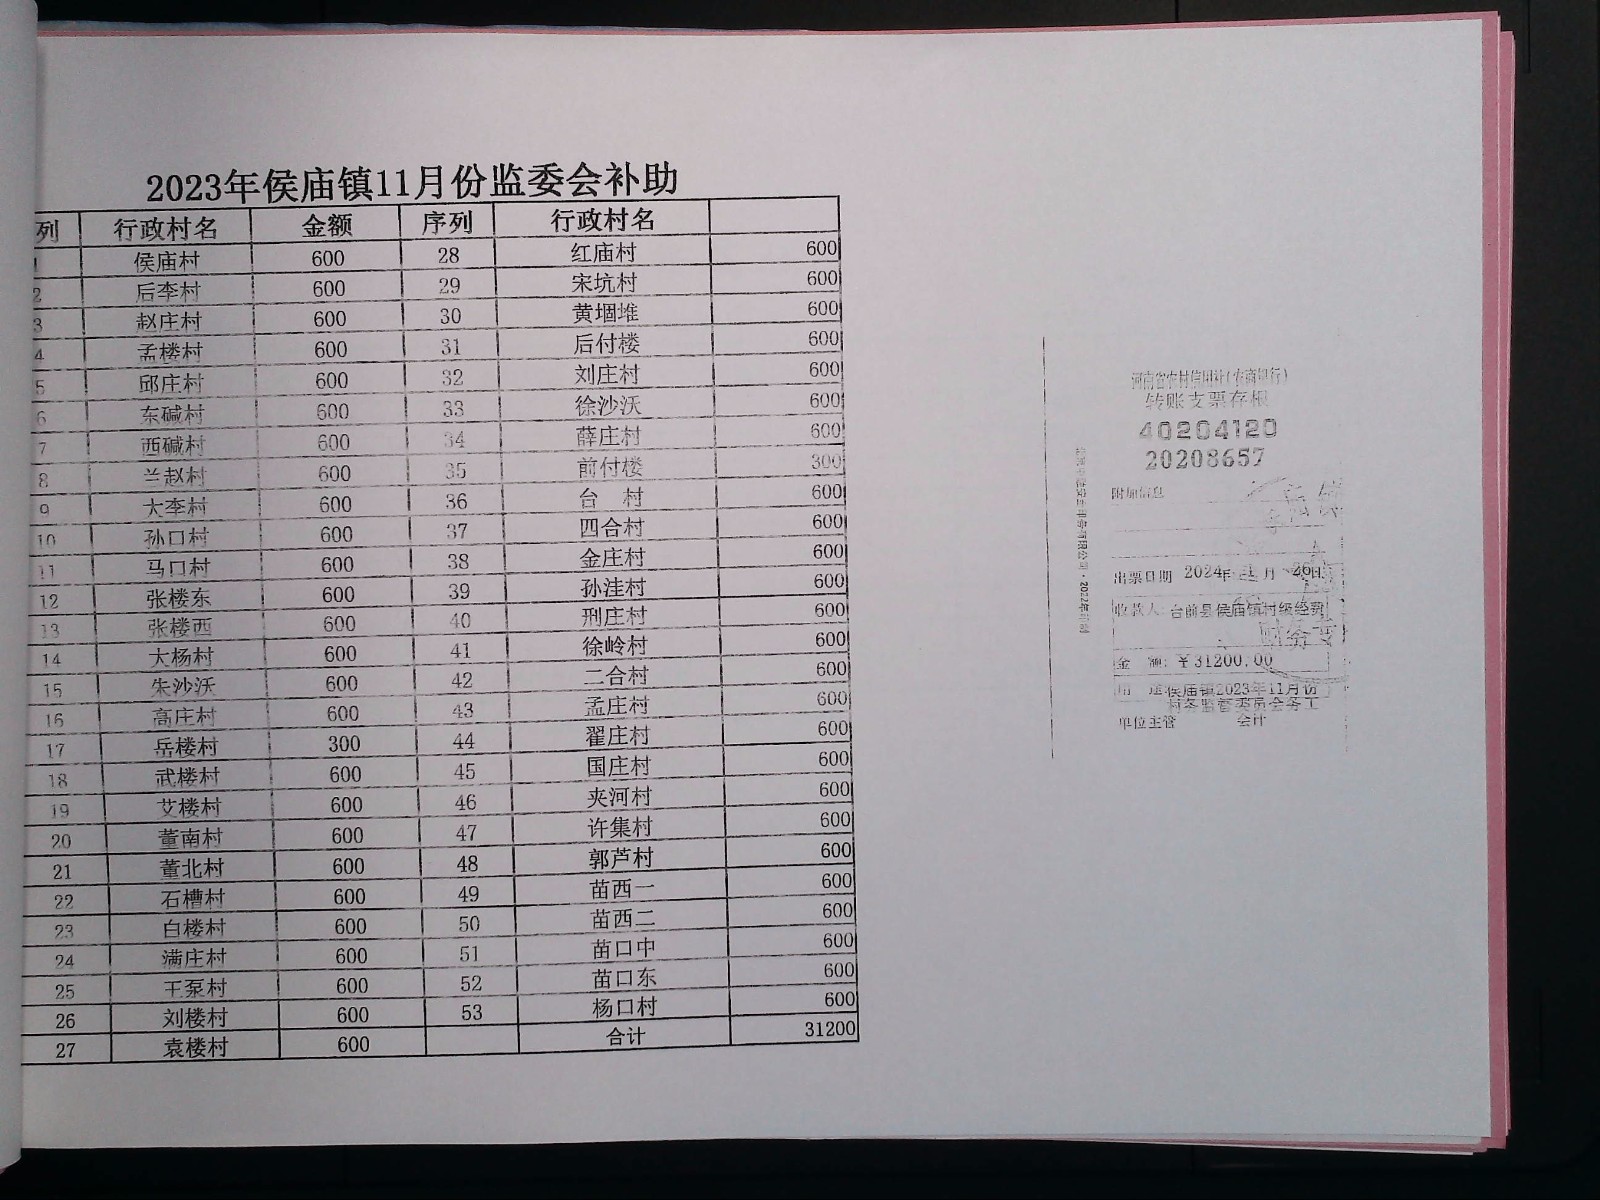 2023年侯庙镇11月份监委会补助
列 行政村名 金额 序列 行政村名
1 侯庙村 600 28 红庙村 600
2 后李村 600 29 宋坑村 600
3 赵庄村 600 30 黄堌堆 600
4 孟楼村 600 31 后付楼 600
5 邱庄村 600 32 刘庄村 600
6 东碱村 600 33 徐沙沃 600
7 西碱村 600 34 薛庄村 600
8 兰赵村 600 35 前付楼 300
9 大李村 600 36 台 村 600
10 孙口村 600 37 四合村 600
11 马口村 600 38 金庄村 600
12 张楼东 600 39 孙洼村 600
13 张楼西 600 40 刑庄村 600
14 大杨村 600 41 徐岭村 600
15 朱沙沃 600 42 二合村 600
16 高庄村 600 43 孟庄村 600
17 岳楼村 300 44 翟庄村 600
18 武楼村 600 45 国庄村 600
19 艾楼村 600 46 夹河村 600
20 董南村 600 47 许集村 600
21 董北村 600 48 郭芦村 600
22 石槽村 600 49 苗西一 600
23 白楼村 600 50 苗西二 600
24 满庄村 600 51 苗口中 600
25 王泵村 600 52 苗口东 600
26 刘楼村 600 53 杨口村 600
27 袁楼村 600 合计 31200
河南省农村信用社(农商银行)
转账支票存根
40204120
20208657
附加信息
出票日期 2024年 月 26日
收款人:台前县侯庙镇村级经费
金 额:￥31200.00
用 途 侯庙镇2023年11月份
村务监督委员会务工
单位主管 会计
印务有限公司·2022年印制